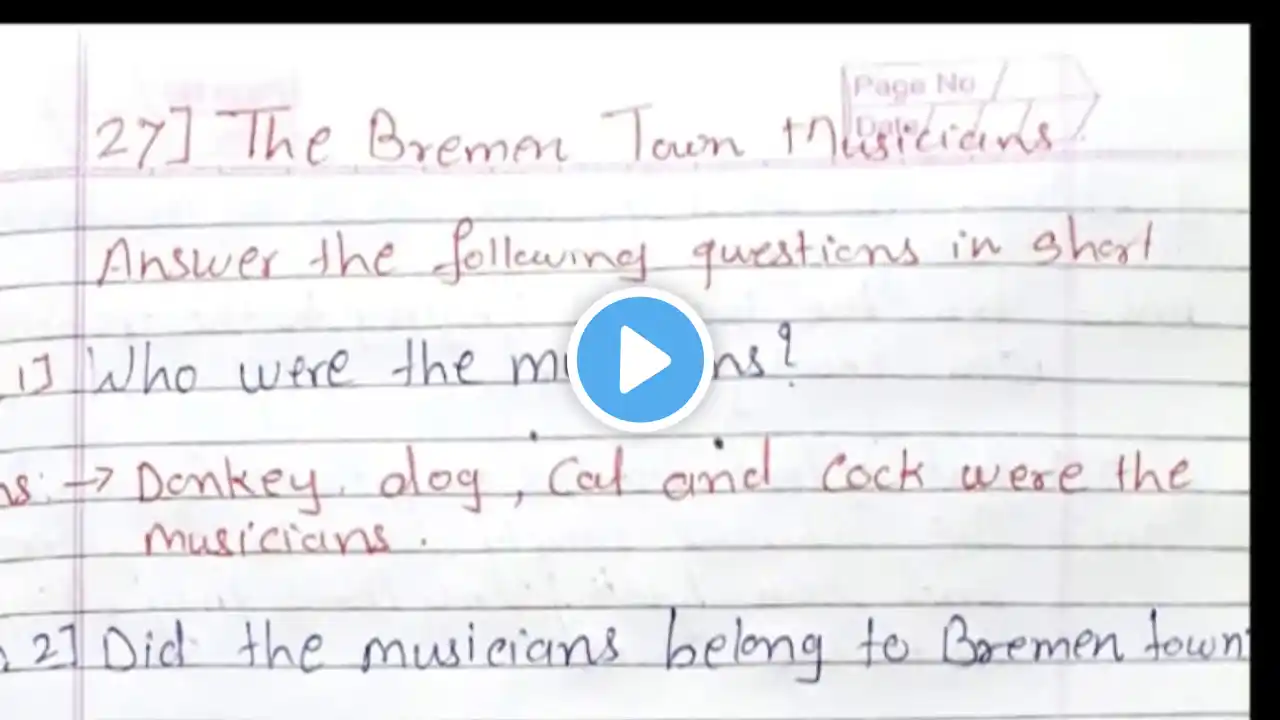 Page No
Date
27] The Bremen Town Musicians
Answer the following questions in short
1] Who were the
ns: → Donkey. dog, Cat and Cock were the
musicians.
2] Did the musicians belong to Bremen town